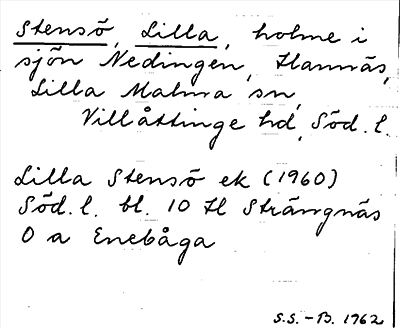 Stensö, Lilla, holme i
sjön Nedingen, Hannäs,
Lilla Malma sn,
Villåttinge hd, Söd. l.
Lilla Stensö ek (1960)
Söd. l. bl. 10 H Strängnäs
O a Enebåga
S.S. - B. 1962